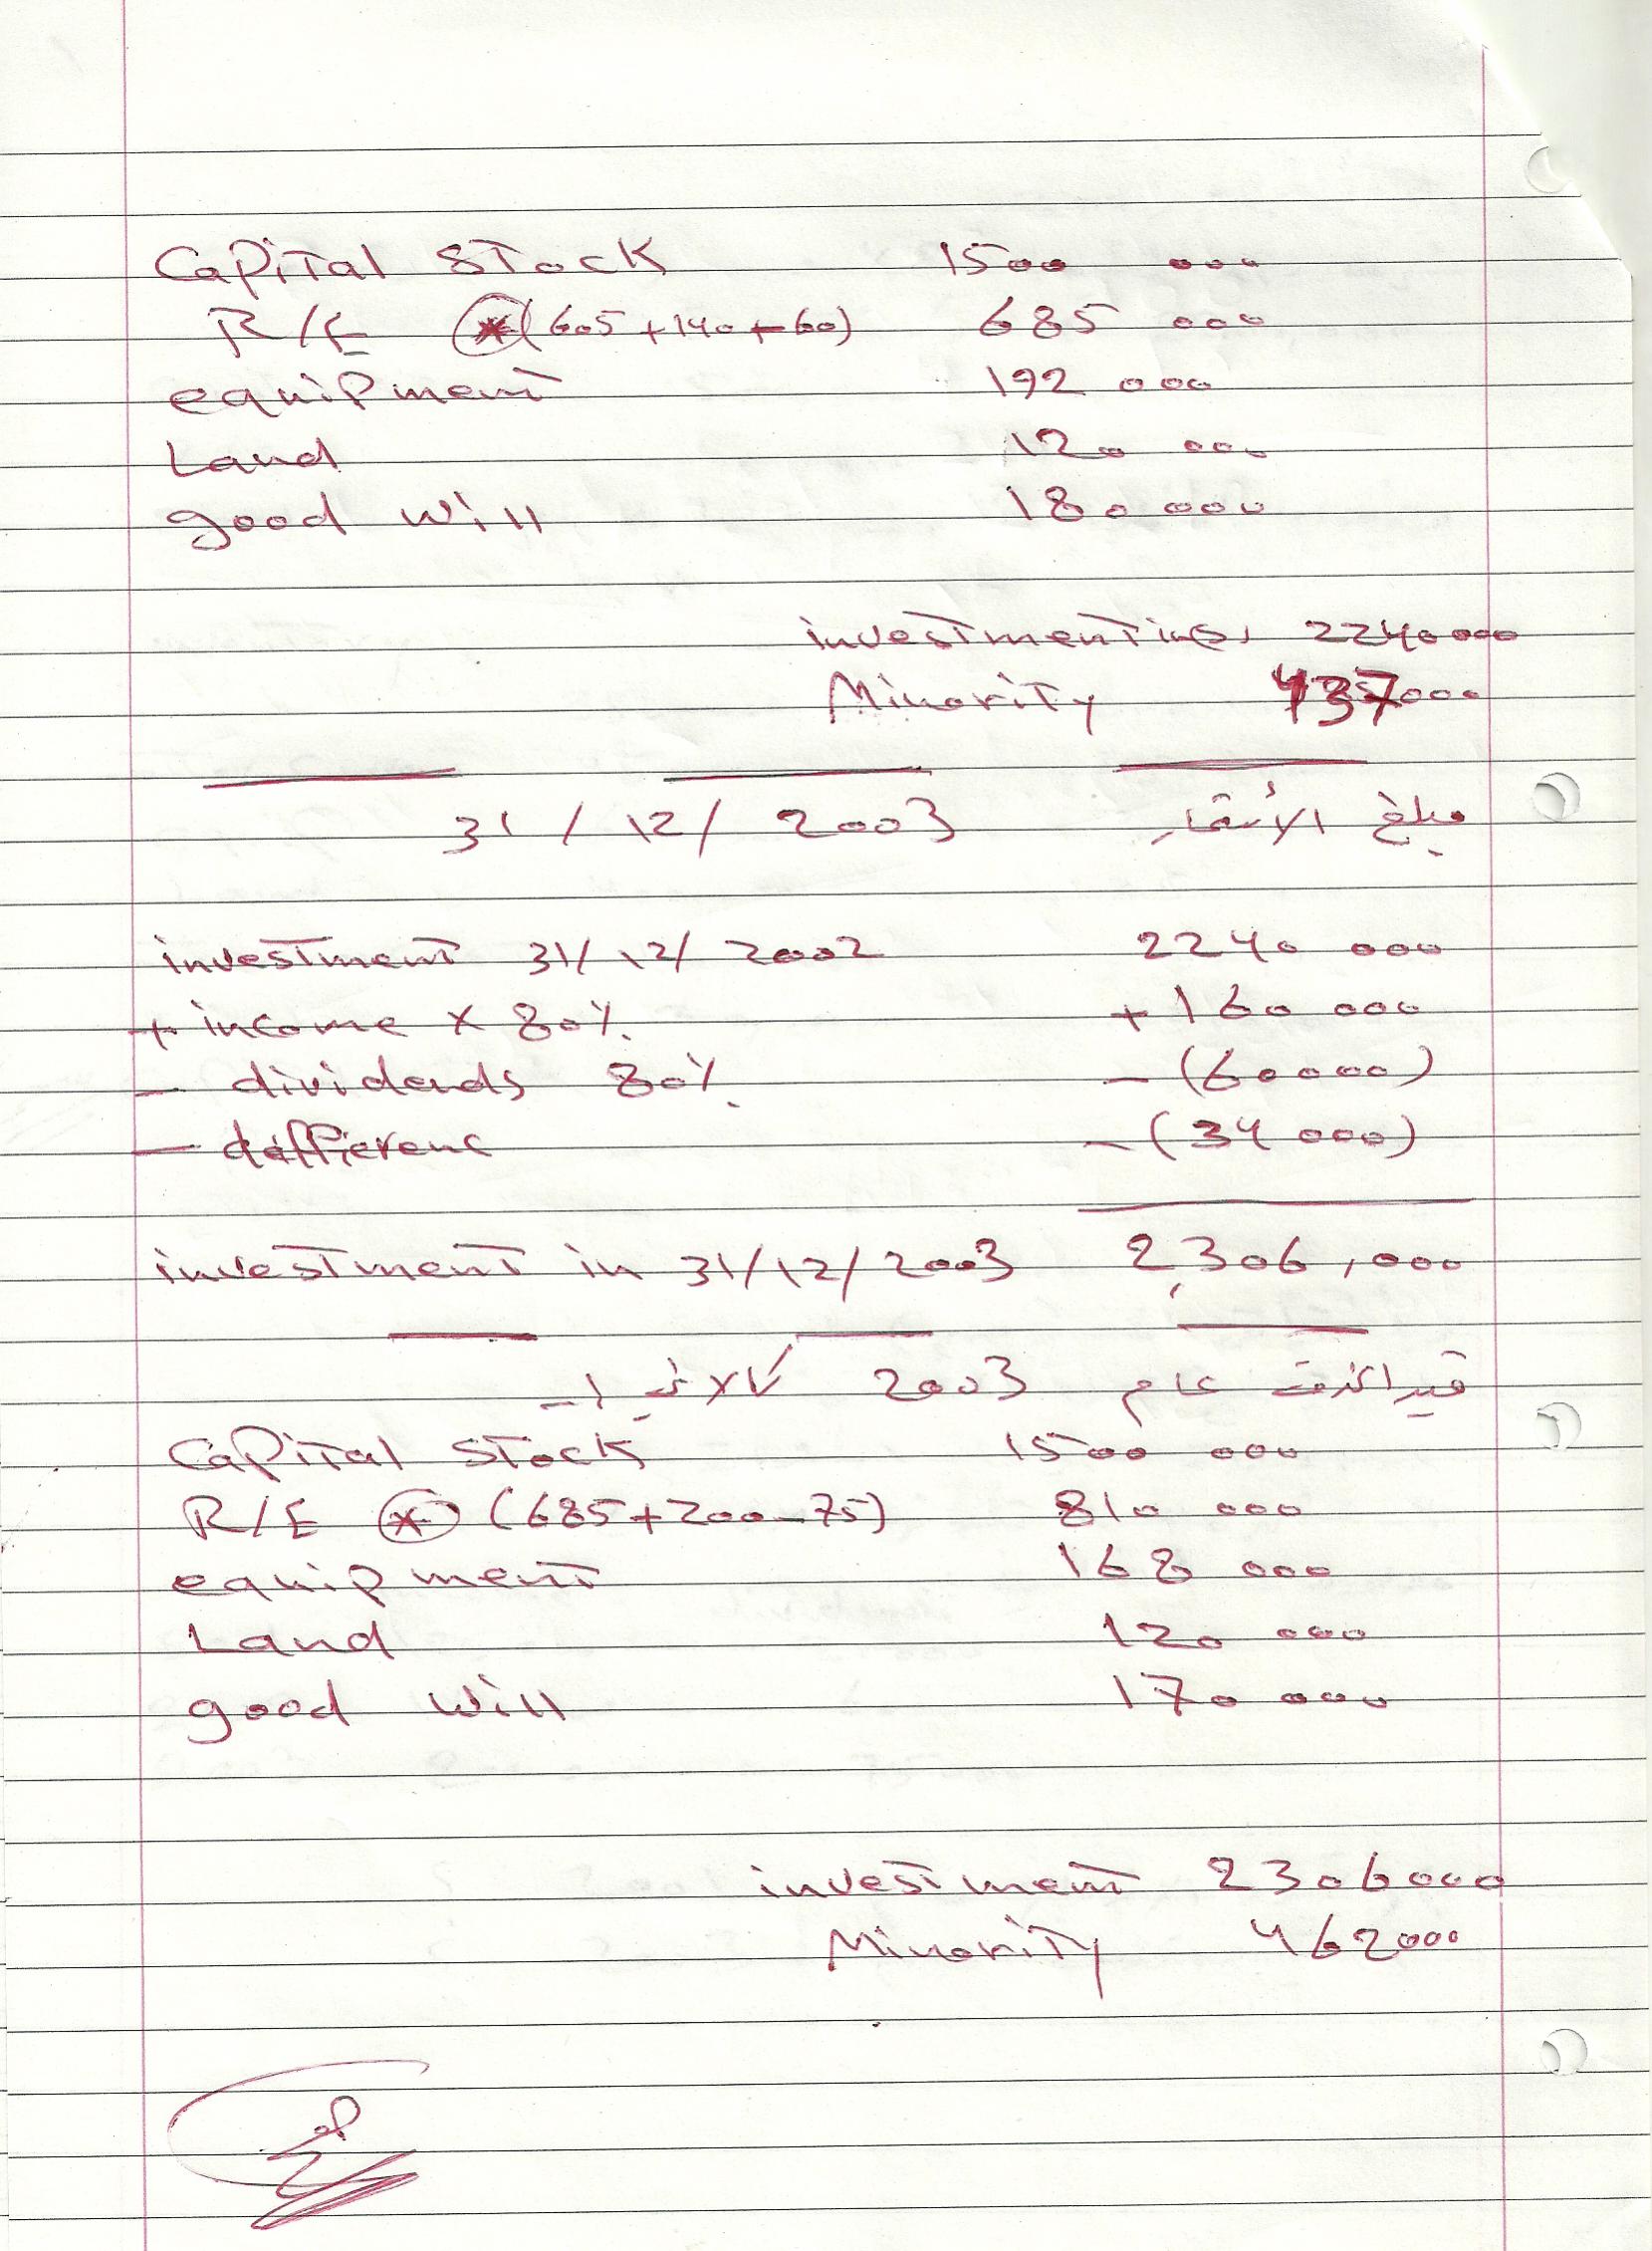 Capital Stock 1500 000
R/E * (605+140-60) 685 000
equipment 192 000
Land 120 000
good will 180 000
investment in S. 2240000
Minority 437000
31/12/2003 مبلغ الأستثمار
investment 31/12/2002 2240 000
+ income × 80% + 160 000
- dividends 80% - (60000)
- differenc - (34 000)
investment in 31/12/2003 2,306,000
قيد الحذف عام 2003 كالاتي :-
Capital Stock 1500 000
R/E * (685+200-75) 810 000
equipment 168 000
Land 120 000
good will 170 000
investment 2306000
Minority 462000